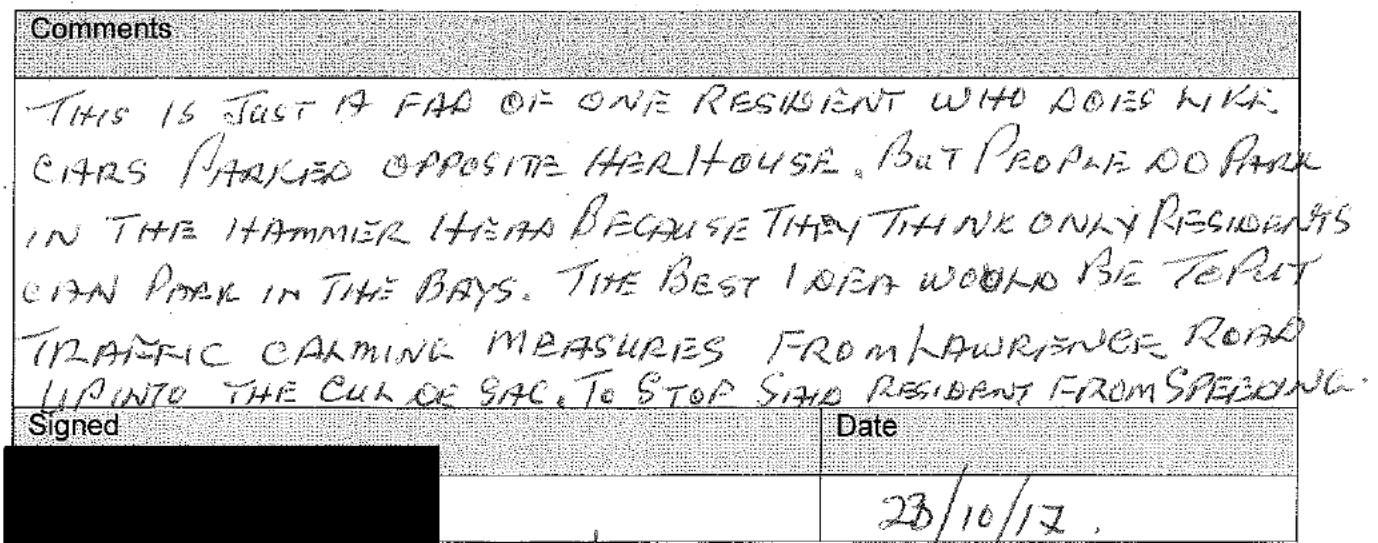 Comments
THIS IS JUST A FAD OF ONE RESIDENT WHO DOES LIKE
CARS PARKED OPPOSITE HER HOUSE. BUT PEOPLE DO PARK
IN THE HAMMER HEAD BECAUSE THEY THINK ONLY RESIDENTS
CAN PARK IN THE BAYS. THE BEST IDEA WOULD BE TO PUT
TRAFFIC CALMING MEASURES FROM LAWRENCE ROAD
UP INTO THE CUL DE SAC. TO STOP SAID RESIDENT FROM SPEEDING.
Signed Date
23/10/17.